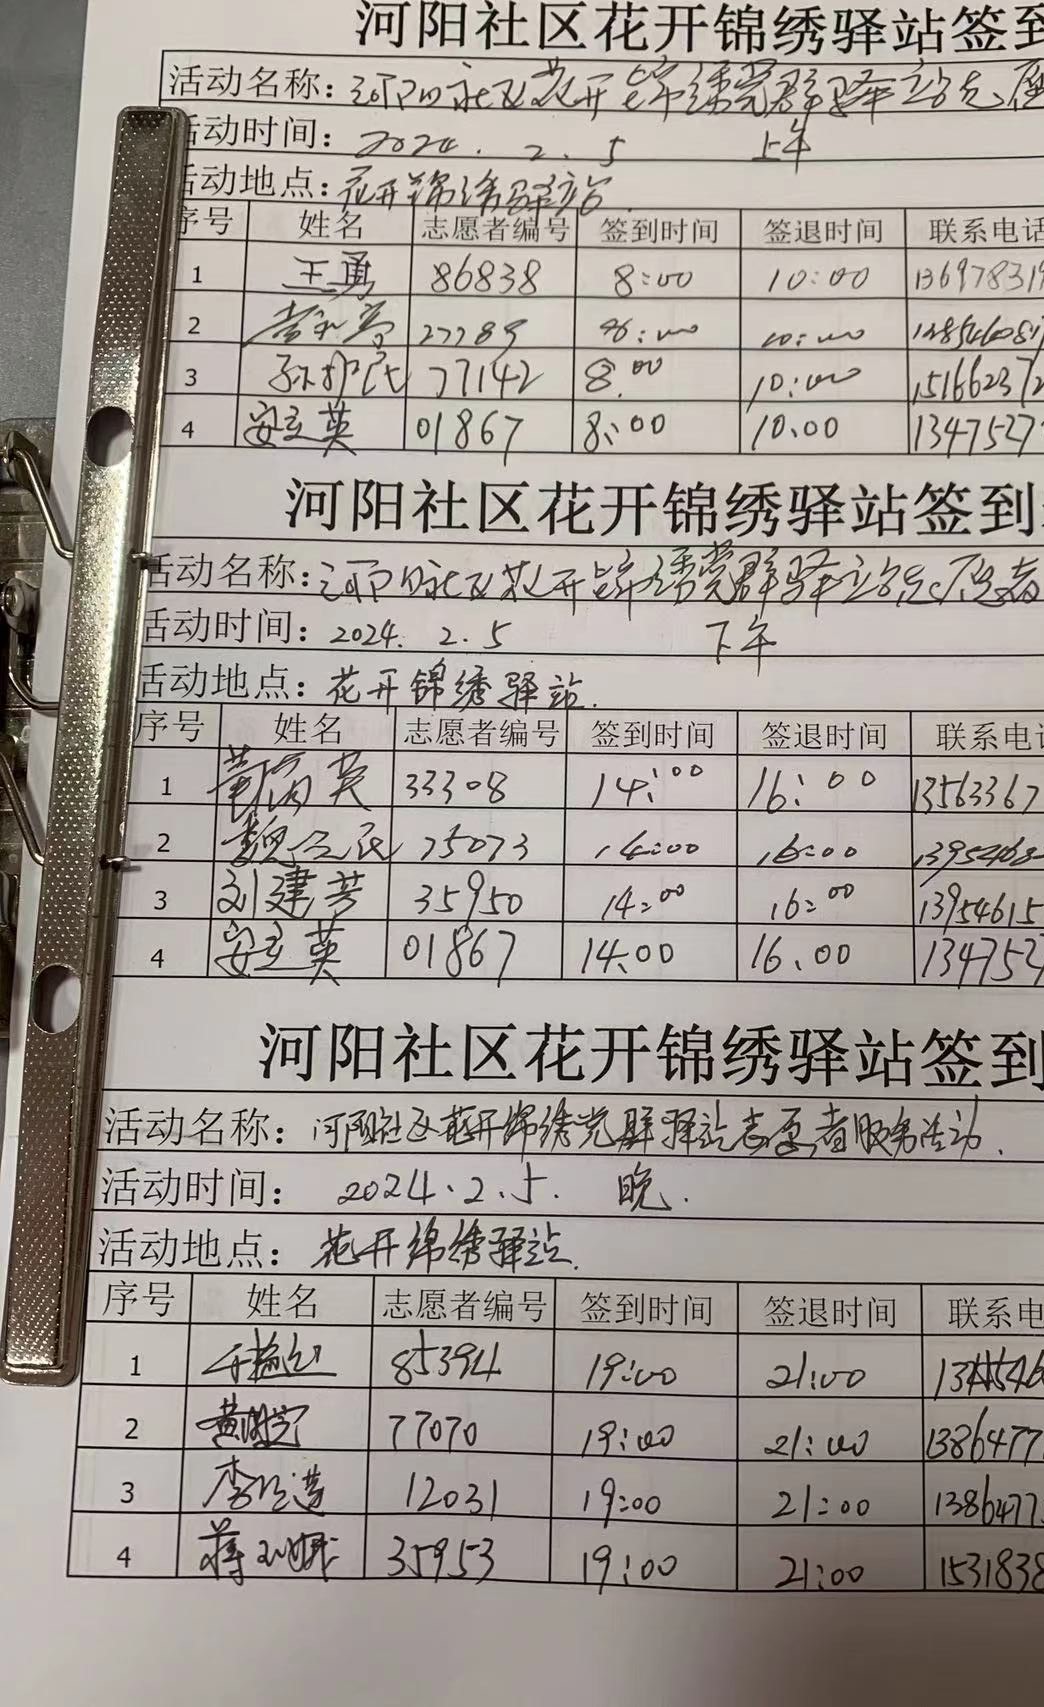 河阳社区花开锦绣驿站签到
活动名称：河阳社区花开锦绣党群驿站志愿
活动时间：2024.2.5 上午
活动地点：花开锦绣驿站.
序号 姓名 志愿者编号 签到时间 签退时间 联系电话
1 王勇 86838 8:00 10:00 136978319
2 27289 8:00 10:00
3 孙护民 77142 8:00 10:00 15166237
4 安立英 01867 8:00 10:00 1347527
河阳社区花开锦绣驿站签到
活动名称：河阳社区花开锦绣党群驿站志愿者
活动时间：2024.2.5 下午
活动地点：花开锦绣驿站.
序号 姓名 志愿者编号 签到时间 签退时间 联系电话
1 英 33308 14:00 16:00 13563367
2 魏 民 75073 14:00 16:00
3 刘建芳 35950 14:00 16:00 13954615
4 安立英 01867 14:00 16:00 1347527
河阳社区花开锦绣驿站签到
活动名称：河阳社区花开锦绣党群驿站志愿者服务活动.
活动时间：2024.2.5. 晚.
活动地点：花开锦绣驿站.
序号 姓名 志愿者编号 签到时间 签退时间 联系电
1 85394 19:00 21:00
2 黄 77070 19:00 21:00 1386477
3 李 12031 19:00 21:00 1386477
4 蒋 娜 35953 19:00 21:00 1531838